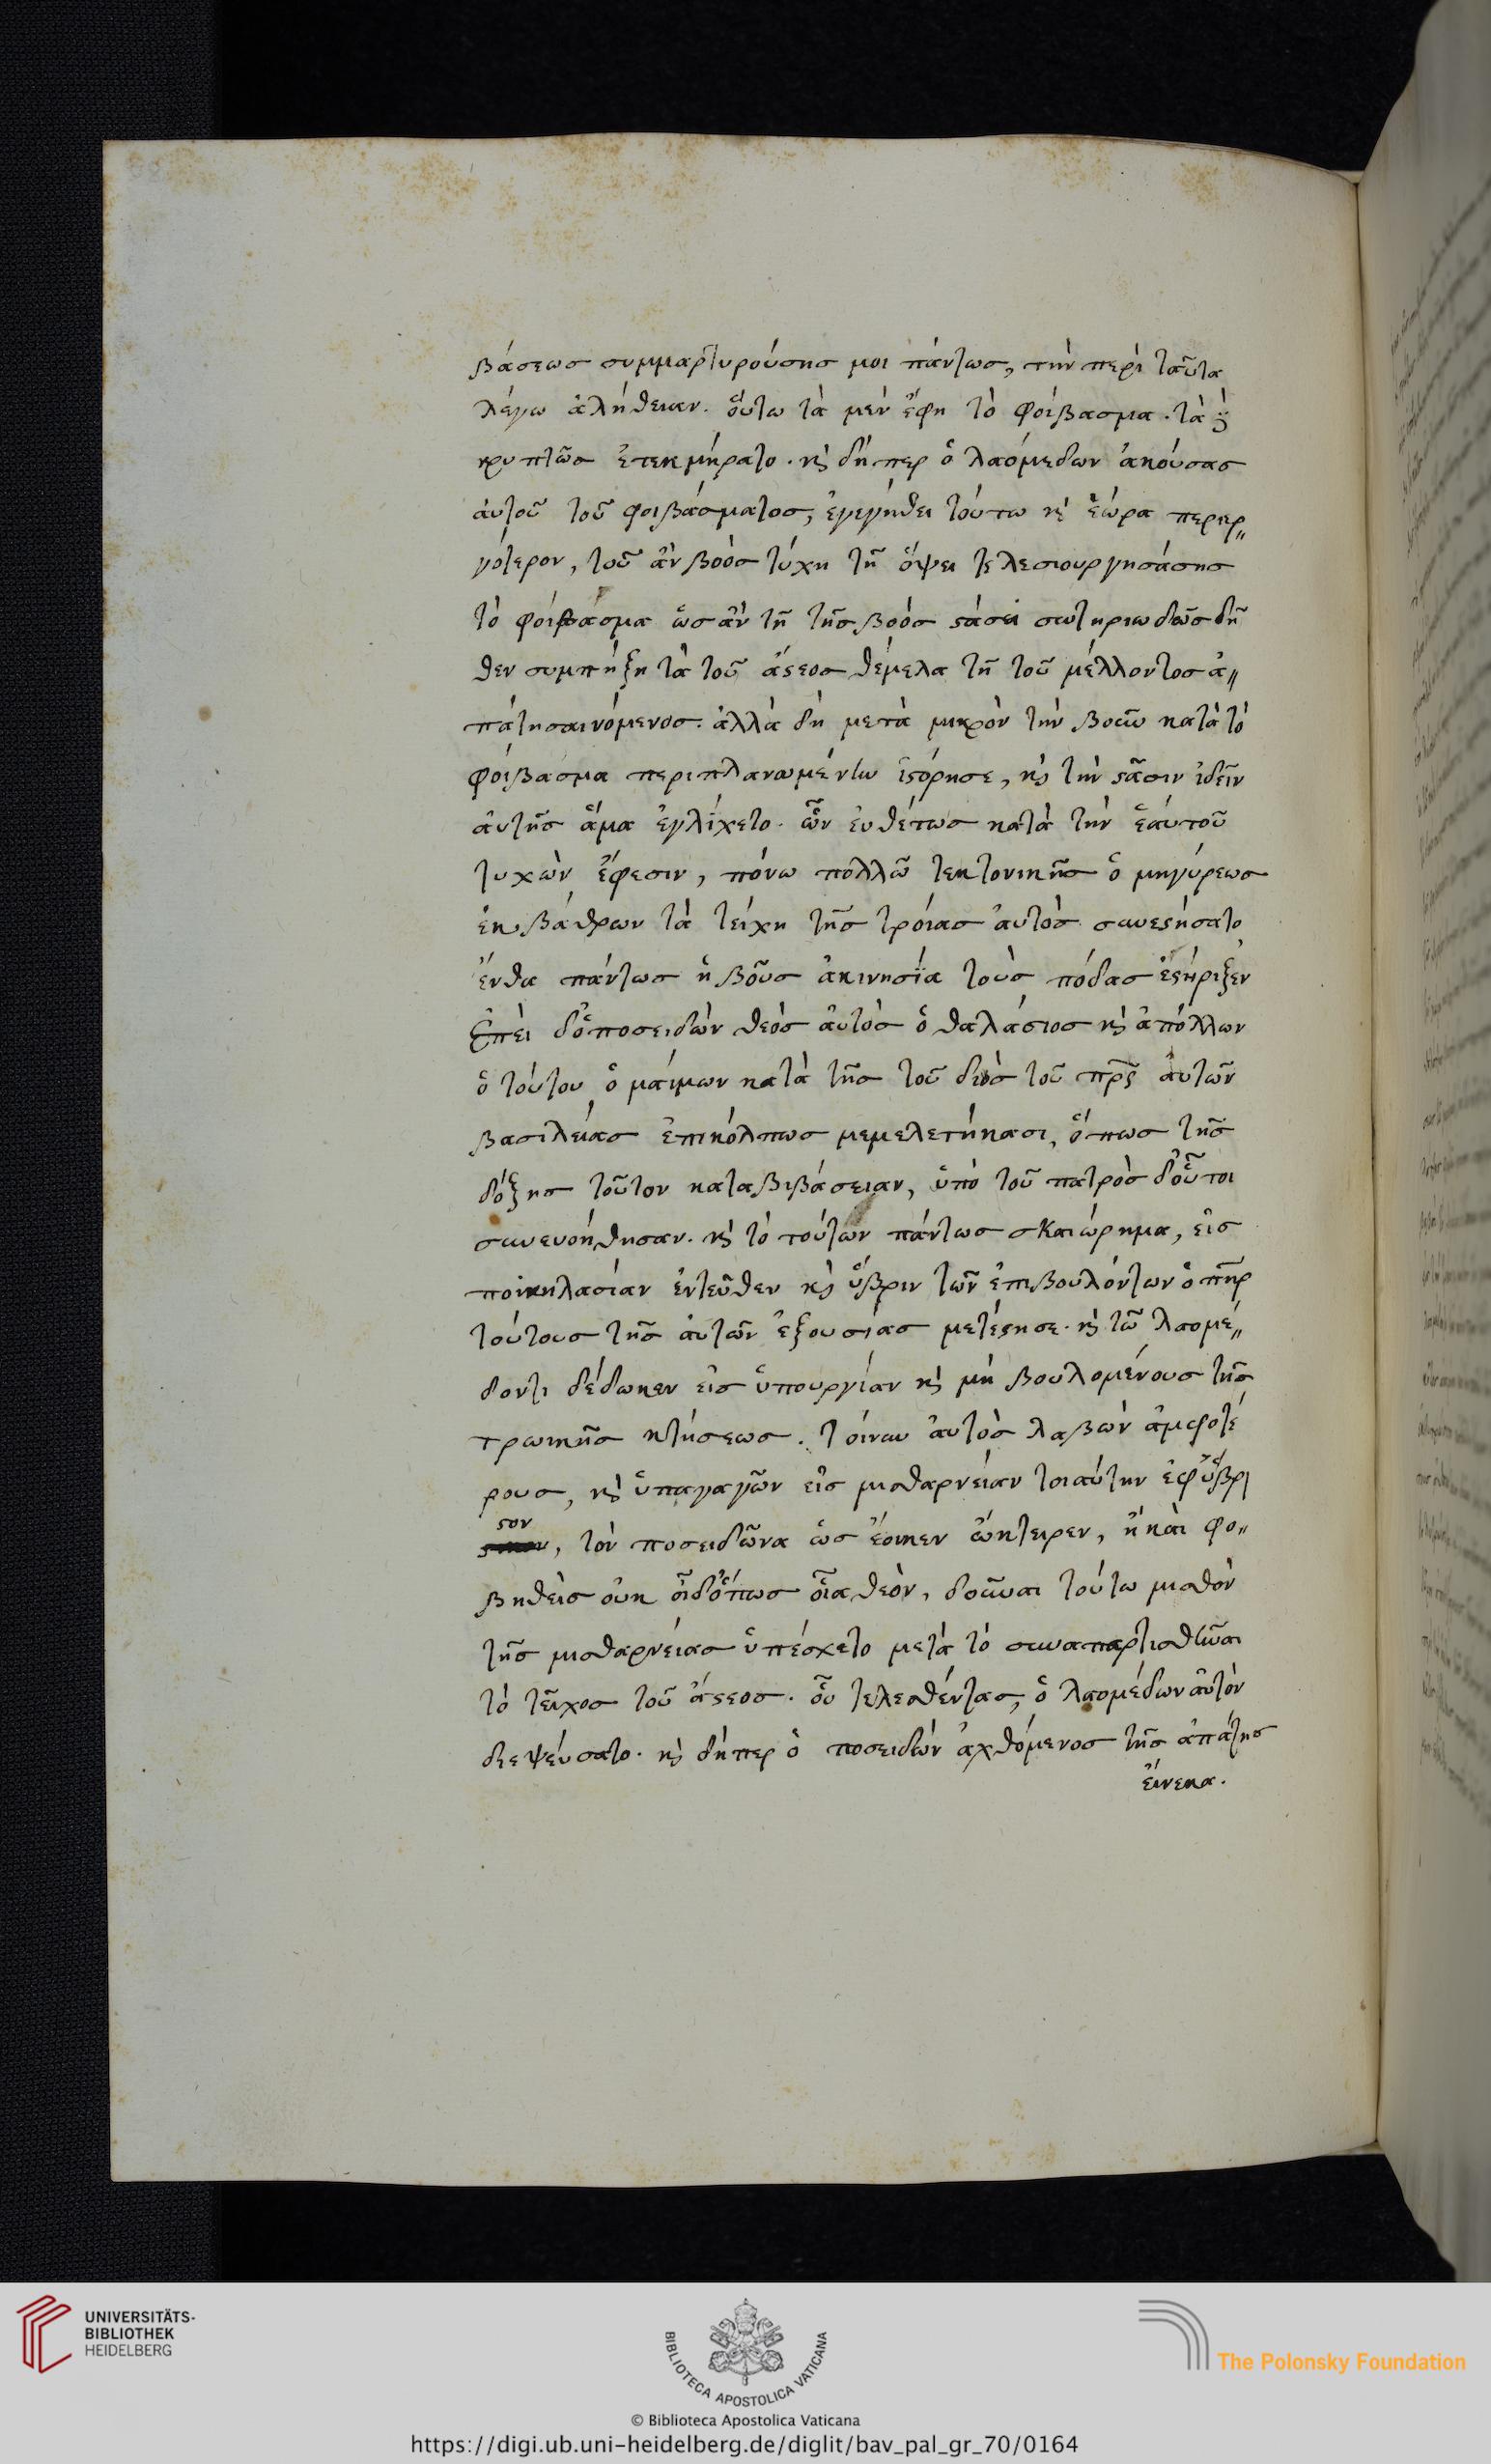 βάσεως συμμαρτυρούσης μοι πάντως, τὴν περὶ ταῦτα
λέγω ἀλήθειαν. οὕτω τὰ μὲν ἔφη τὸ φοίβασμα. τὰ δὲ
κρυπτῶς ἐτεκμήρατο. κὶ δήπερ ὁ λαομέδων ἀκούσας
ἀυτοῦ τοῦ φοιβάσματος, ἐγεγήθει τούτω κὶ ἑώρα περιερ〃
γότερον, τοῦ ἂν βοὸς τύχη τῆ ὄψει τελεσιουργησάσης
τὸ φοίβασμα ὡσἂν τῆ τῆς βοὸς ϛάσει σωτηριωδῶς δῆ
θεν συμπήξη τὰ τοῦ ἄϛεος θέμελα τῆ τοῦ μέλλοντος ἀ〃
πάτη σαινόμενος. ἀλλὰ δὴ μετὰ μικρὸν τὴν βοῦν κατὰ τὸ
φοίβασμα περιπλανωμένην ἱϛόρησε, κὶ τὴν ϛᾶσιν ἰδεῖν
ἀυτῆς ἅμα ἐγλίχετο. ὧν ἐυθέτως κατὰ τὴν ἑάυτοῦ
τυχὼν ἔφεσιν, πόνω πολλῶ τεκτονικῆς ὁ μηγύρεως
ἐκ βάθρων τὰ τείχη τῆς τρόιας ἀυτὸς συνεϛήσατο
ἔνθα πάντως ἡ βοῦς ἀκινησία τοὺς πόδας ἐϛήριξεν
Ἐπεὶ δ’ὁ ποσειδῶν θεὸς ἀυτὸς ὁ θαλάσιος κὶ ἀπόλλων
ὁ τούτου ὁμαίμων κατὰ τῆς τοῦ διὸς τοῦ πρς ἀυτῶν
βασιλείας ἐπικόλπως μεμελετήκασι, ὅπως τῆς
δόξης τοῦτον καταβιβάσειαν, ὑπὸ τοῦ πατρὸς δ’οὗτοι
συνενοήθησαν. κὶ τὸ τούτων πάντως σκαιώρημα, εἰς
ποικηλασίαν ἐντεῦθεν κὶ ὕβριν τῶν ἐπιβουλόντων ὁ πηρ
τούτους τῆς ἀυτῶν ἐξουσίας μετέϛησε. κὶ τῶ λαομέ〃
δοντι δέδωκεν εἰς ὑπουργίαν κὶ μὴ βουλομένους τῆς
τρωικῆς κτίσεως. τοίνυν ἀυτὸς λαβὼν ἀμφοτέ
ρους, κὶ ὑπαγαγῶν εἰς μισθαρνείαν τοιαύτην ἐφ’ὕβρι
ϛον, τὸν ποσειδῶνα ὡς ἔοικεν ὤκτειρεν, ἢ καὶ φο〃
βηθεὶς ὀυκ οἶδ’ὅπως οἷα θεὸν, δοῦναι τούτω μισθὸν
τῆς μισθαρνείας ὑπέσχετο μετὰ τὸ συναπαρτισθῆναι
τὸ τεῖχος τοῦ ἄϛεος. οὗ τελεσθέντας, ὁ λαομέδων ἀυτὸν
διεψεύσατο. κὶ δήπερ ὁ ποσειδῶν ἀχθόμενος τῆς ἀπάτης
εἵνεκα.
UNIVERSITÄTS-
BIBLIOTHEK
HEIDELBERG
BIBLIOTECA APOSTOLICA VATICANA
The Polonsky Foundation
© Biblioteca Apostolica Vaticana
https://digi.ub.uni-heidelberg.de/diglit/bav_pal_gr_70/0164